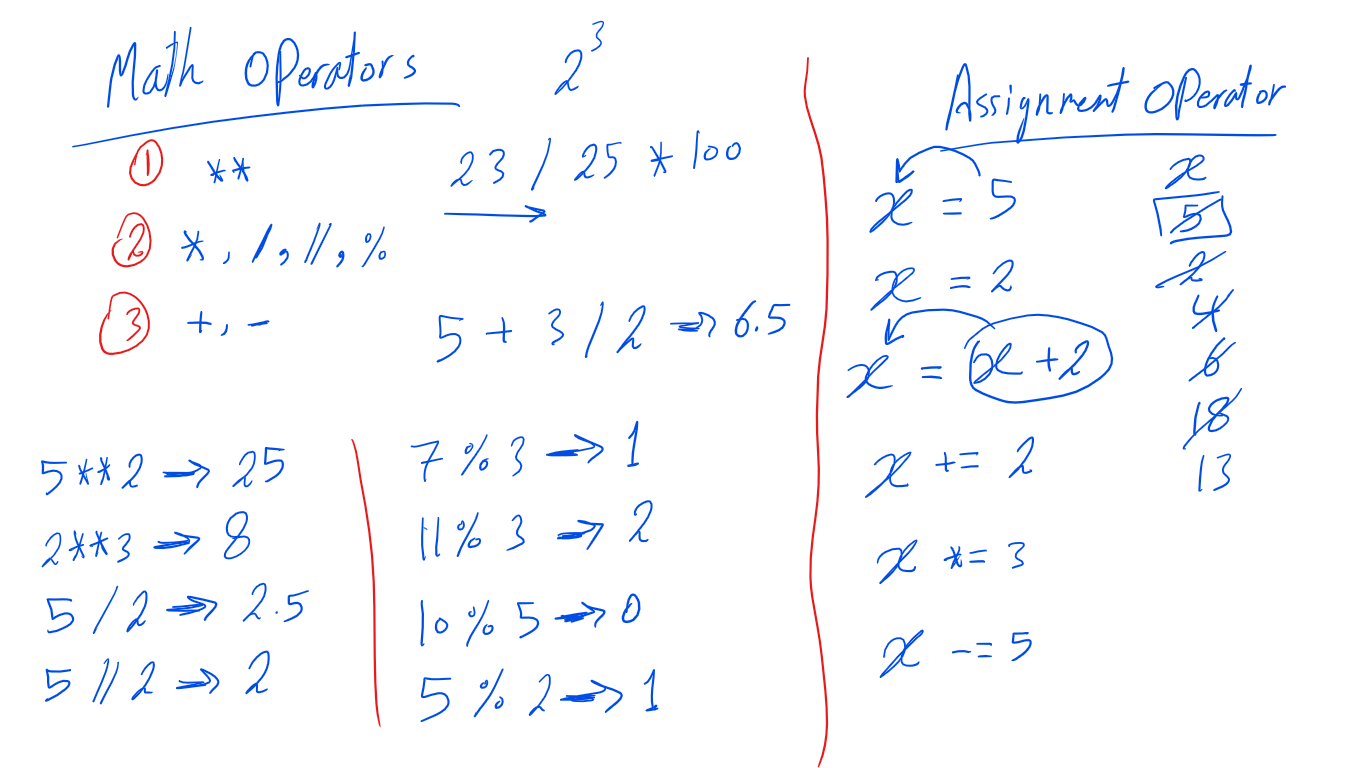 Math Operators
2³
① **
23 / 25 * 100
② *, /, //, %
③ +, -
5 + 3 / 2 → 6.5
5**2 → 25
2**3 → 8
5 / 2 → 2.5
5 // 2 → 2
7 % 3 → 1
11 % 3 → 2
10 % 5 → 0
5 % 2 → 1
Assignment Operator
x = 5
x = 2
x = x + 2
x += 2
x *= 3
x -= 5
x
5
2
4
6
18
13